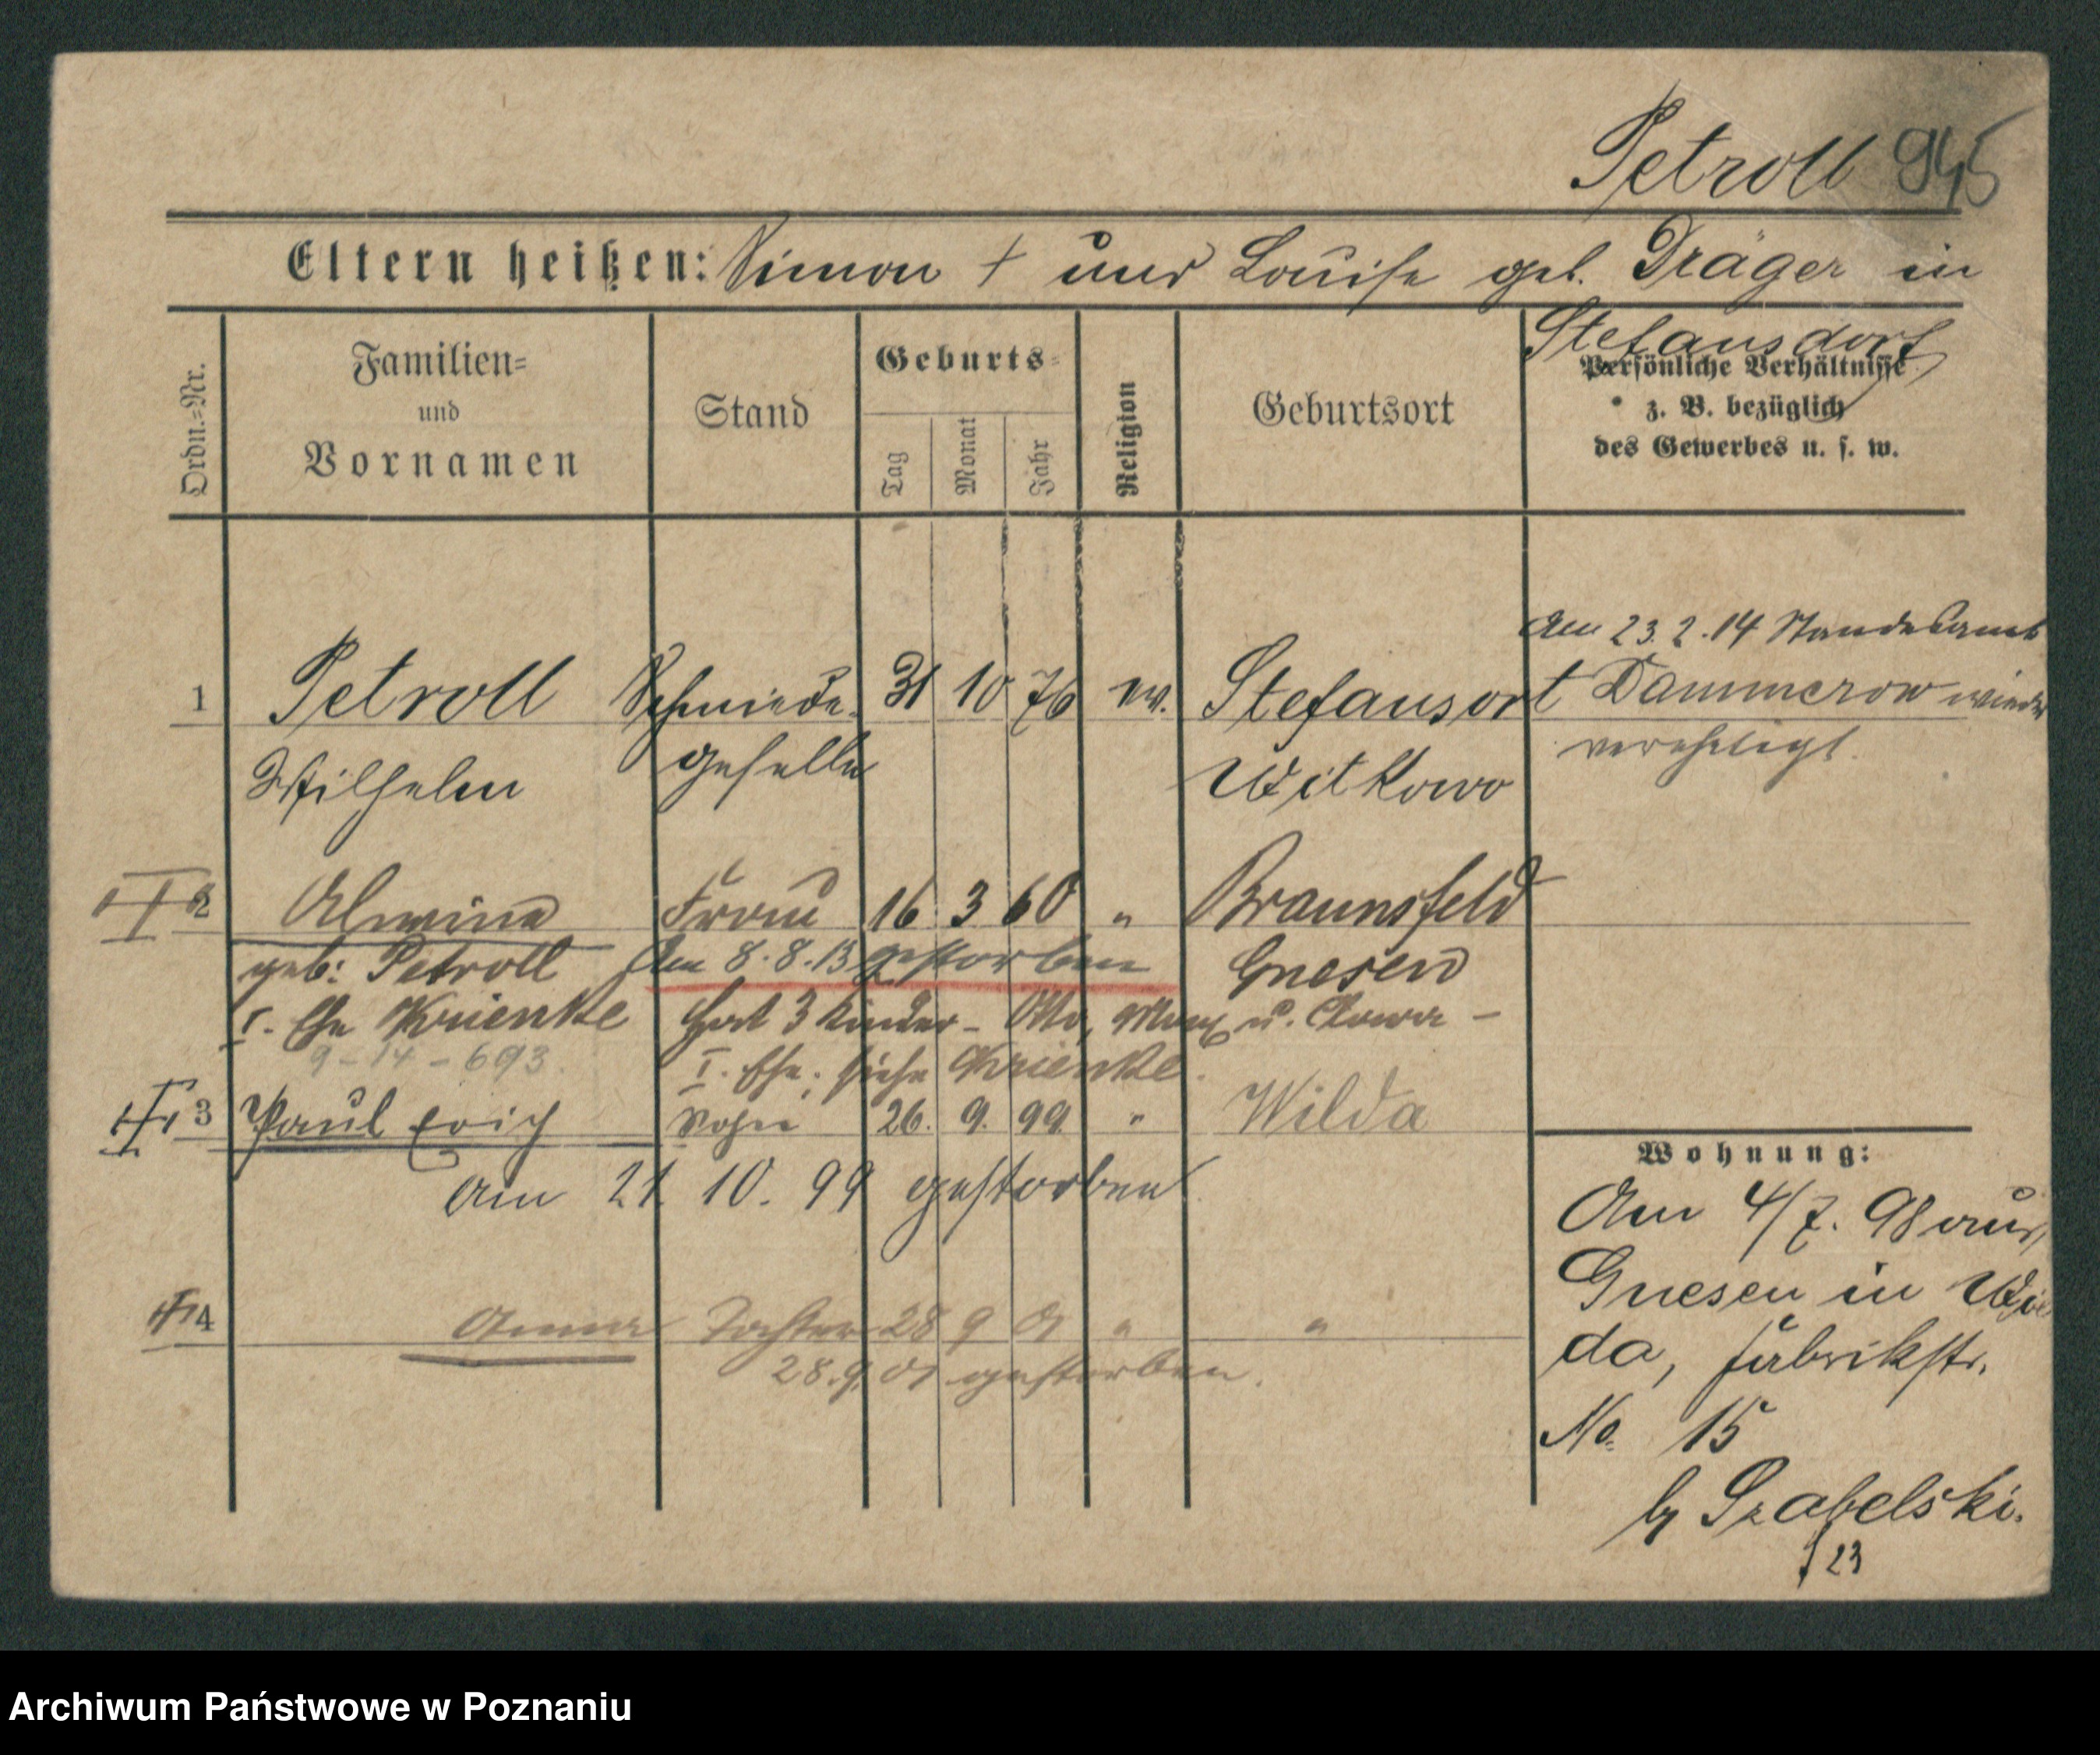 Petroll 945
Eltern heißen: Simon + und Louise geb. Dräger in
Stefansdorf
Ordn.-Nr.
Familien-
und
Vornamen
Stand
Geburts-
Tag
Monat
Jahr
Religion
Geburtsort
Persönliche Verhältnisse
z. B. bezüglich
des Gewerbes u. s. w.
Am 23.2.14 Standesamt
1 Petroll Schmiede- 31 10 76 ev. Stefansort Dammerow wieder
verehligt.
Wilhelm geselle Witkowo
2 Alwine Frau 16 3 60 " Braunsfeld
geb: Petroll Am 8.8.13 gestorben Gnesen
I. Ehe Krienke Hat 3 Kinder - Otto, Max u. Clara -
9-14-693. I. Ehe: siehe Krienke.
3 Paul Erich Sohn 26. 9. 99. " Wilda
Am 21. 10. 99 gestorben
4 Anna Tochter 28 9 01 " "
28.9.01 gestorben.
Wohnung:
Am 4/7. 98 aus
Gnesen in Wil
da, Fabrikstr.
No. 15
by Szabelski.
23
Archiwum Państwowe w Poznaniu